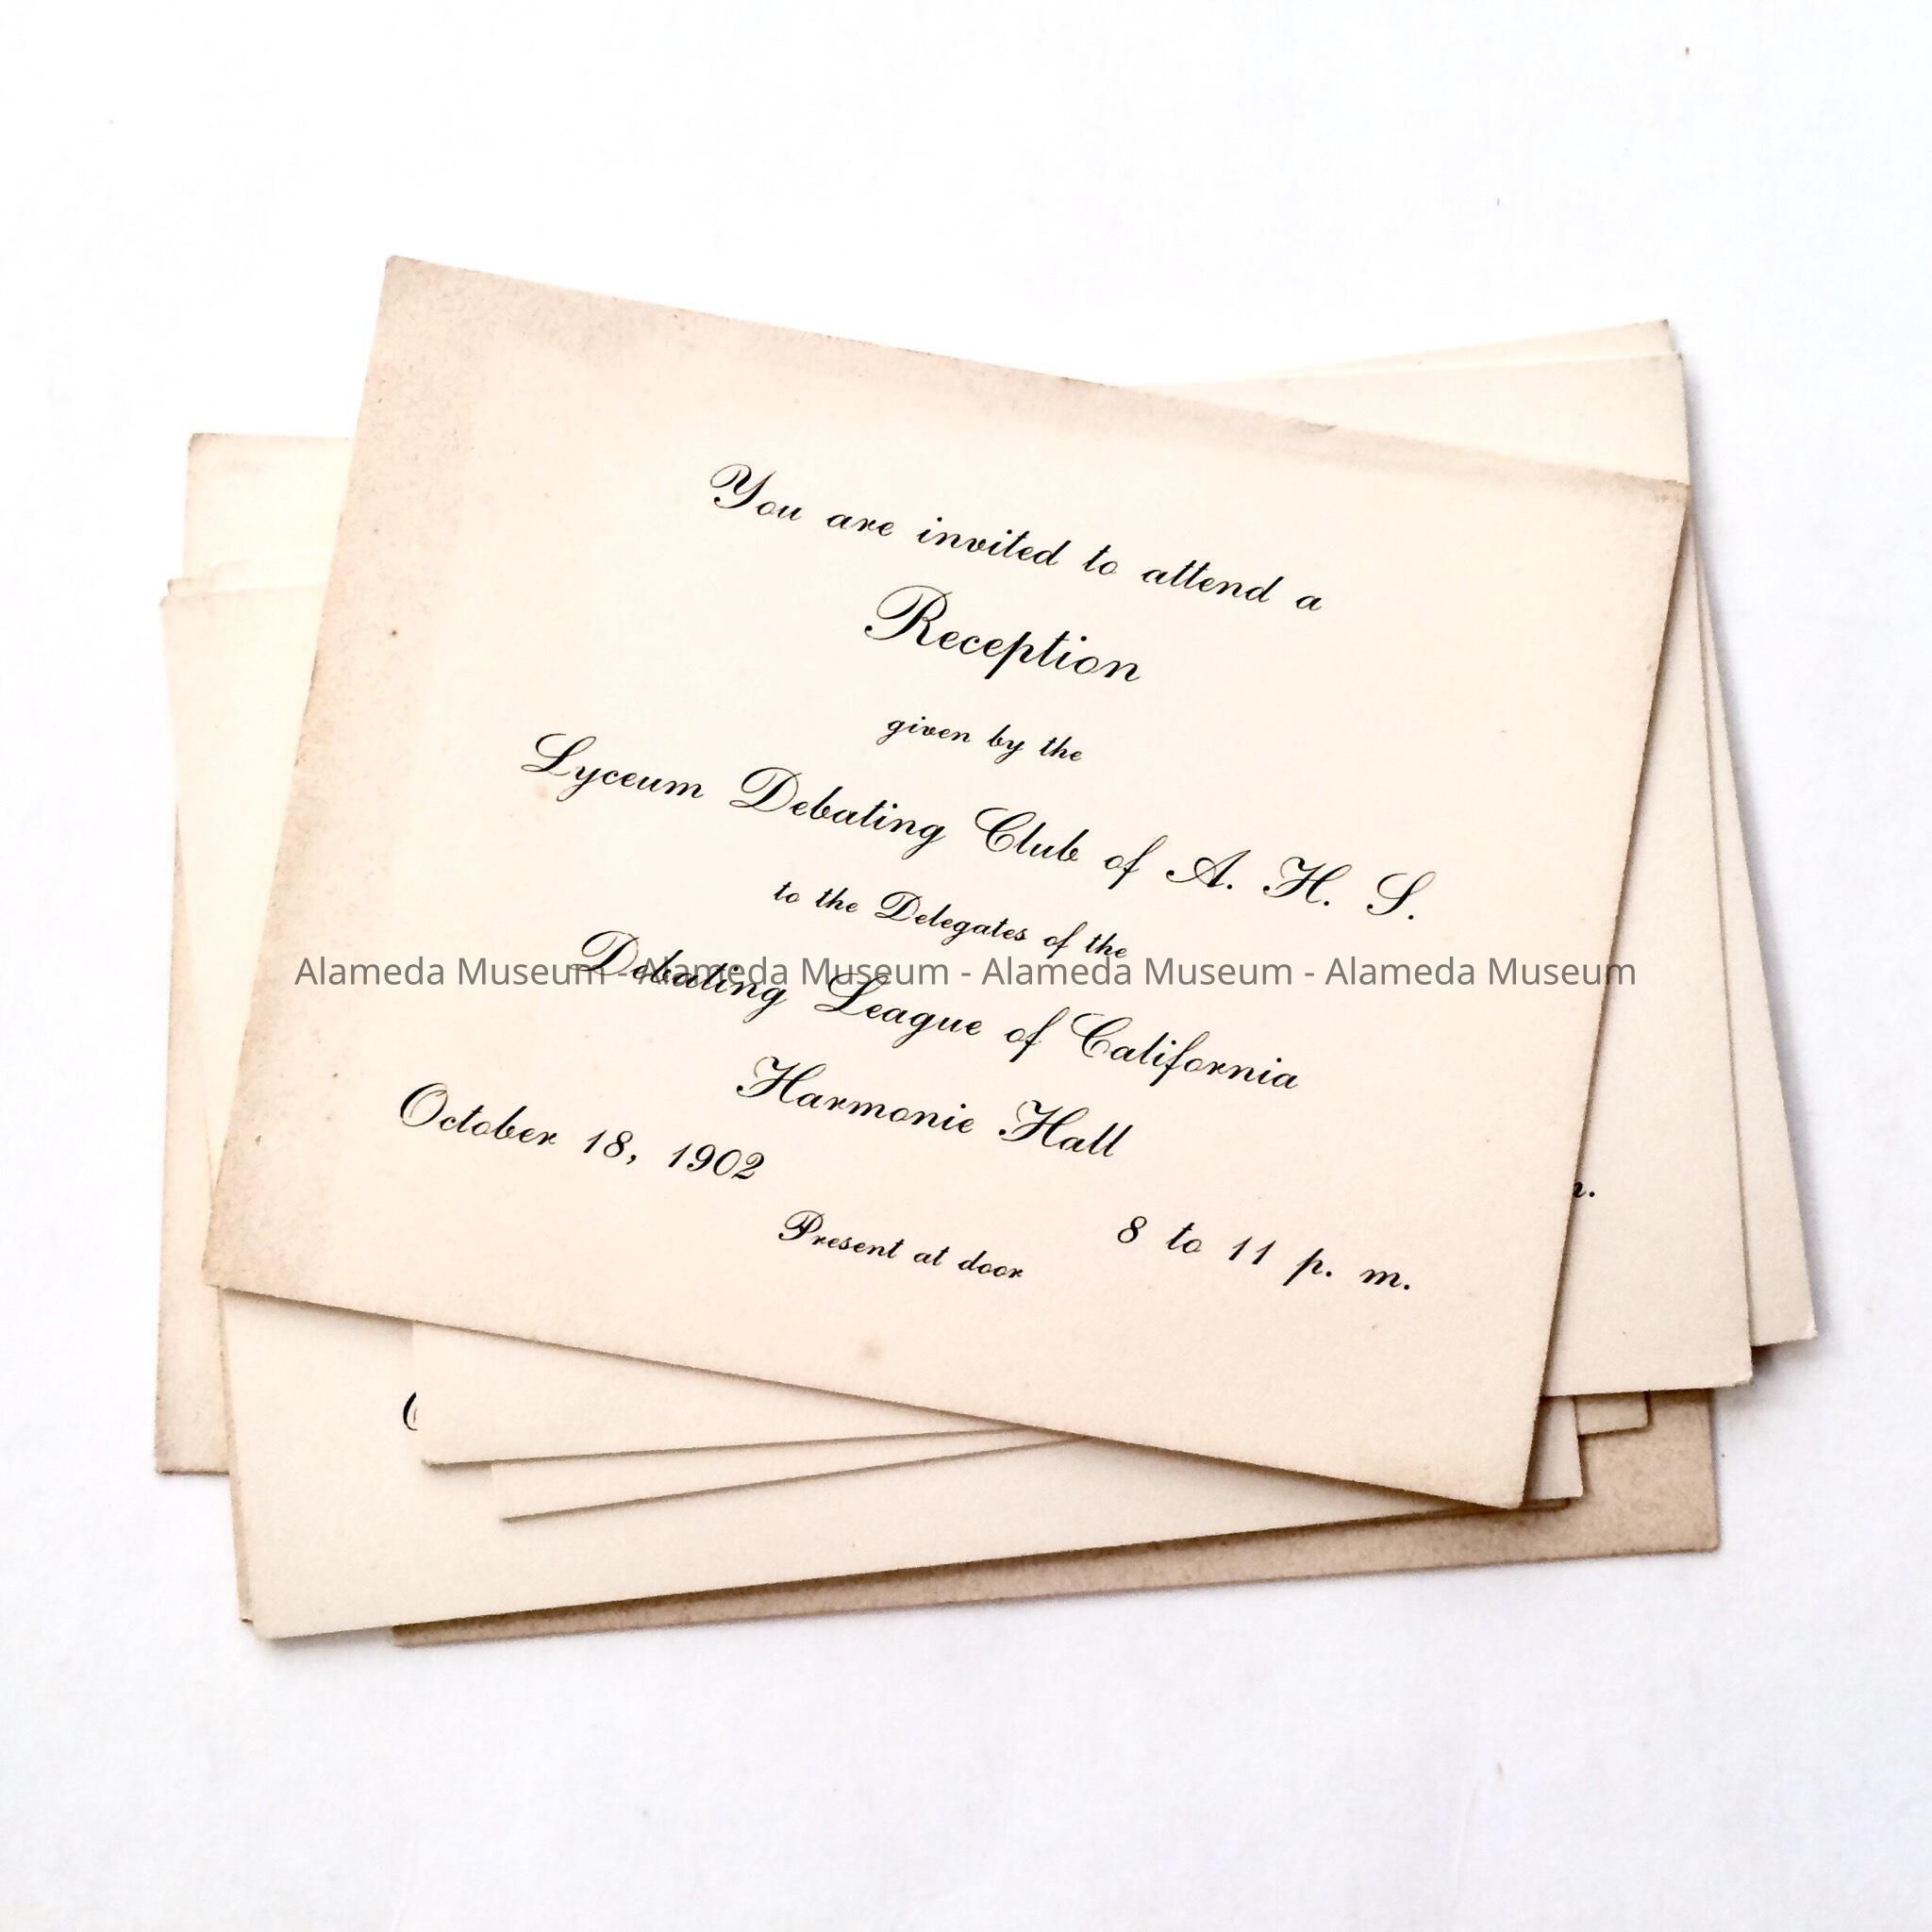 You are invited to attend a
Reception
given by the
Lyceum Debating Club of A. H. S.
to the Delegates of the
Debating League of California
Harmonie Hall
October 18, 1902
8 to 11 p. m.
Present at door
Alameda Museum - Alameda Museum - Alameda Museum - Alameda Museum